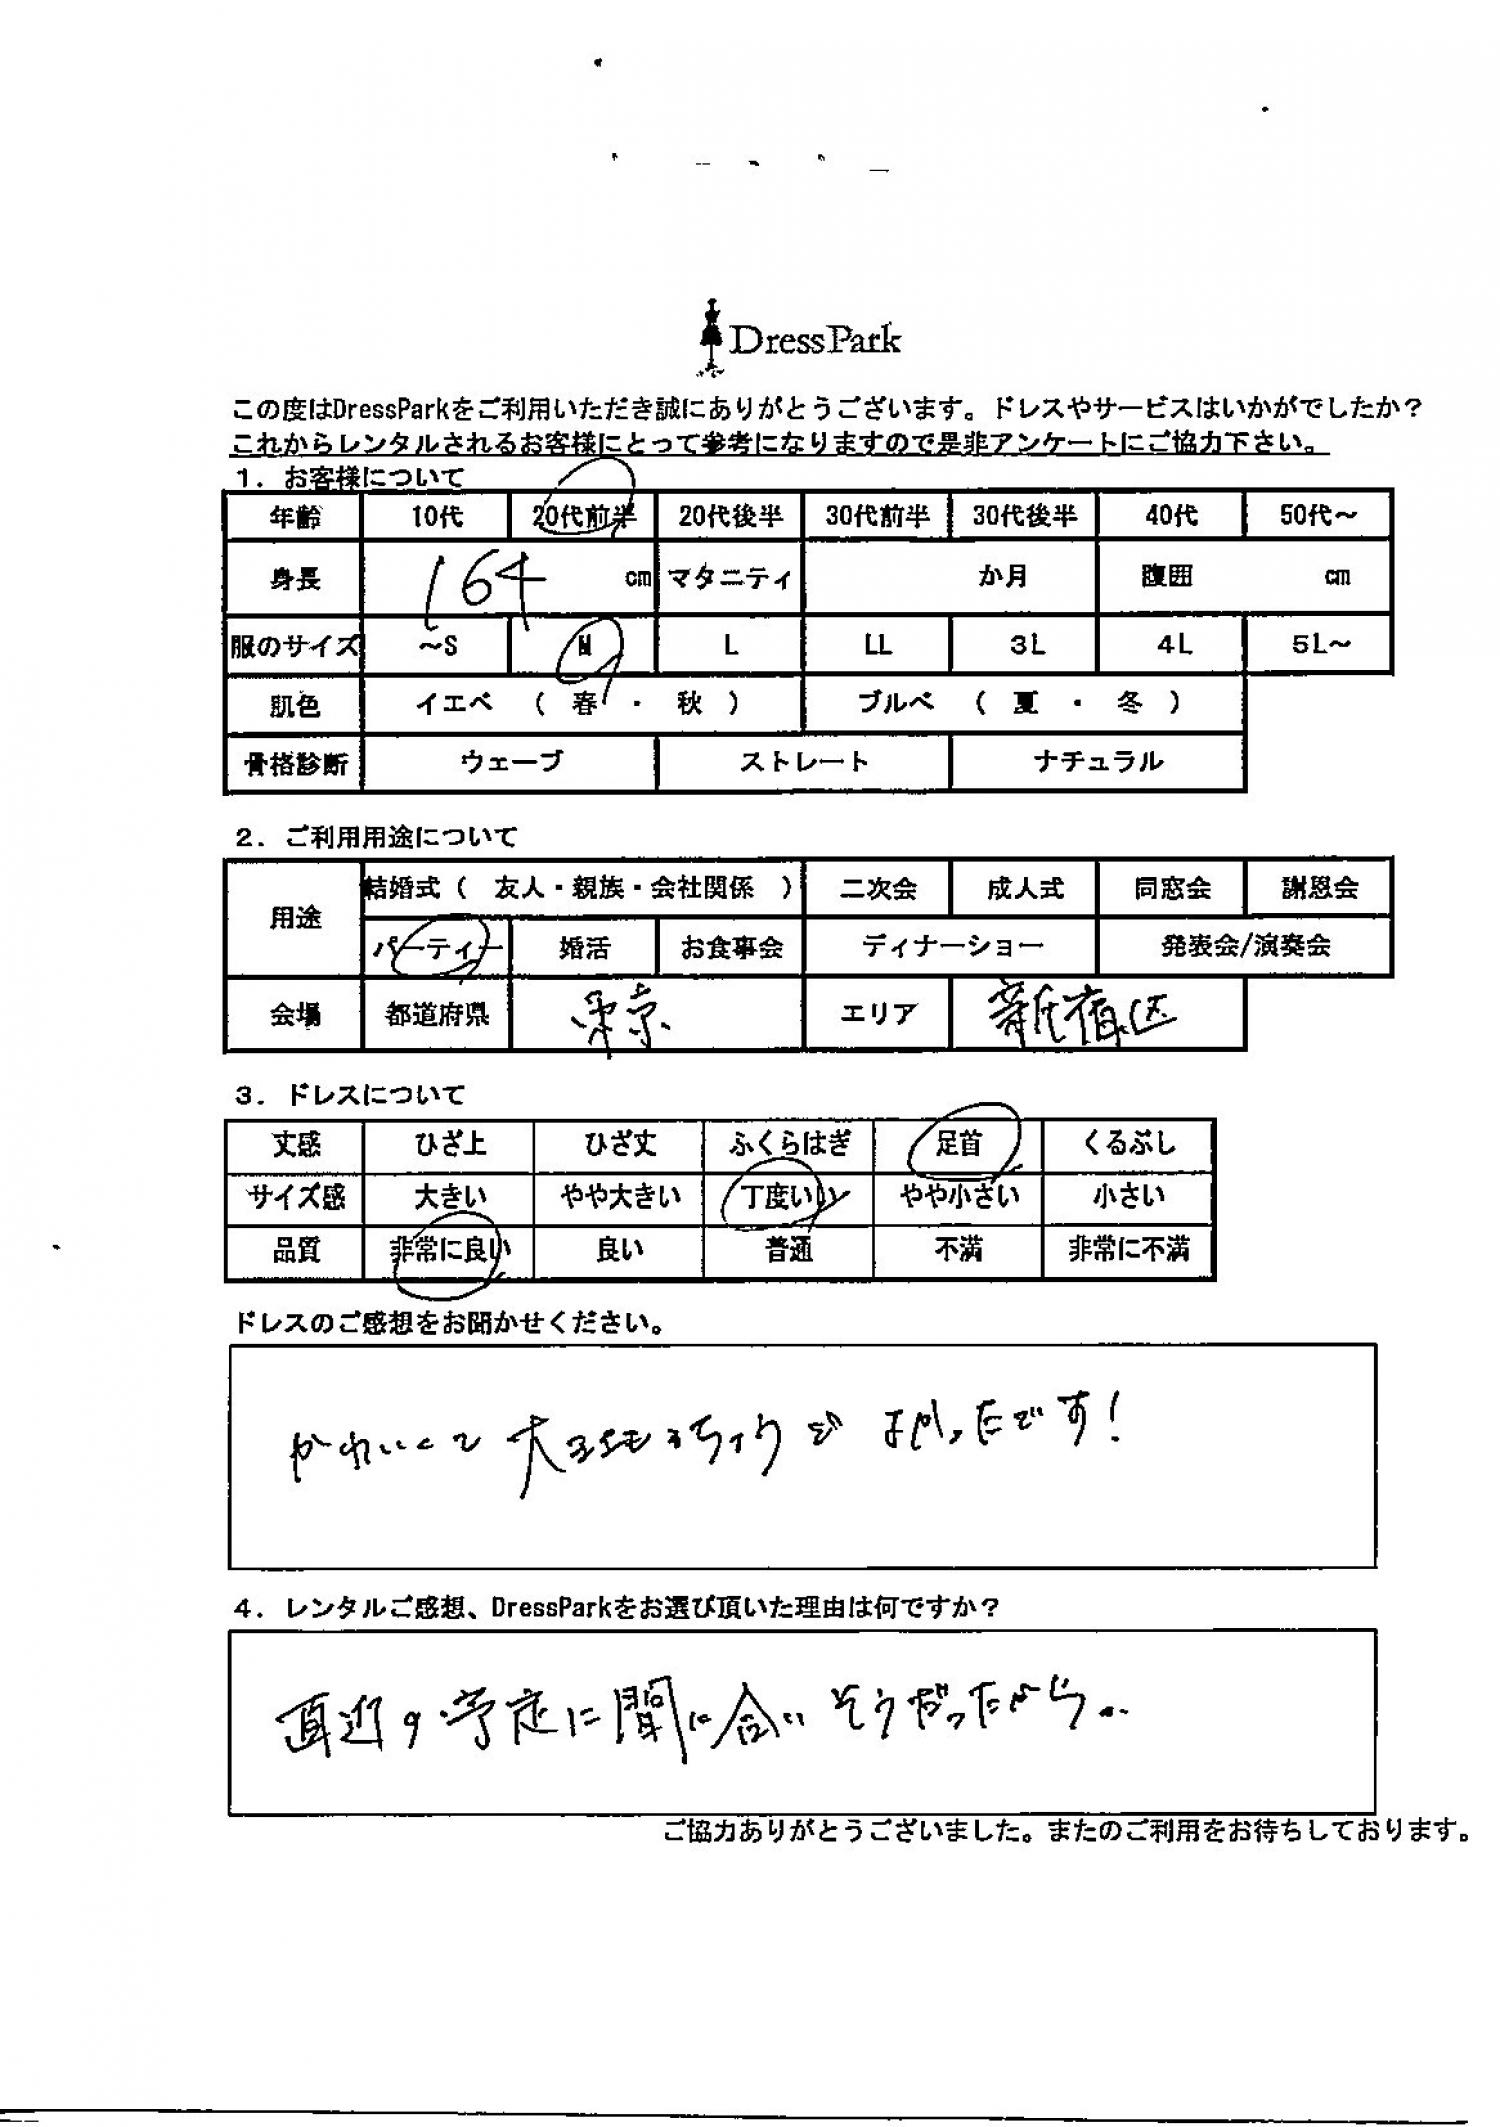 DressPark
この度はDressParkをご利用いただき誠にありがとうございます。ドレスやサービスはいかがでしたか?
これからレンタルされるお客様にとって参考になりますので是非アンケートにご協力下さい。
1. お客様について
年齢 10代 20代前半 20代後半 30代前半 30代後半 40代 50代~
身長 164 cm マタニティ か月 腹囲 cm
服のサイズ ~S M L LL 3L 4L 5L~
肌色 イエベ ( 春 ・ 秋 ) ブルベ ( 夏 ・ 冬 )
骨格診断 ウェーブ ストレート ナチュラル
2. ご利用用途について
用途 結婚式 ( 友人・親族・会社関係 ) 二次会 成人式 同窓会 謝恩会
パーティー 婚活 お食事会 ディナーショー 発表会/演奏会
会場 都道府県 東京 エリア 新宿区
3. ドレスについて
丈感 ひざ上 ひざ丈 ふくらはぎ 足首 くるぶし
サイズ感 大きい やや大きい 丁度いい やや小さい 小さい
品質 非常に良い 良い 普通 不満 非常に不満
ドレスのご感想をお聞かせください。
かわいくて 大 よかったです!
4. レンタルご感想、DressParkをお選び頂いた理由は何ですか?
直近の予定に間に合いそうだったから。
ご協力ありがとうございました。またのご利用をお待ちしております。